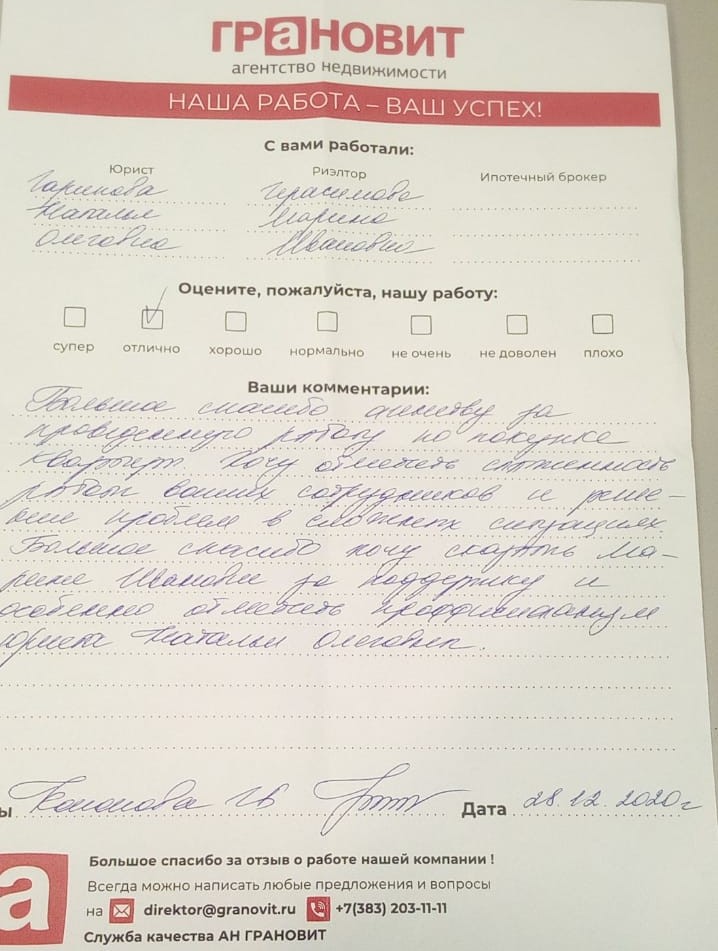 ГРаНОВИТ
агентство недвижимости
НАША РАБОТА – ВАШ УСПЕХ!
С вами работали:
Юрист Риэлтор Ипотечный брокер
Гаринова Герасимова
Наталья Марина
Олеговна Ивановна
Оцените, пожалуйста, нашу работу:
супер отлично хорошо нормально не очень не доволен плохо
Ваши комментарии:
Большое спасибо агенству за
проведенную работу по покупке
квартиры. Хочу отметить слаженность
работы ваших сотрудников и реше-
ние проблем в сложных ситуациях.
Большое спасибо хочу сказать Ма-
рине Ивановне за поддержку и
особенно отметить
юриста Натальи Олеговны.
ы Кононова Дата 28.12.2020г
а
Большое спасибо за отзыв о работе нашей компании !
Всегда можно написать любые предложения и вопросы
на direktor@granovit.ru +7(383) 203-11-11
Служба качества АН ГРАНОВИТ